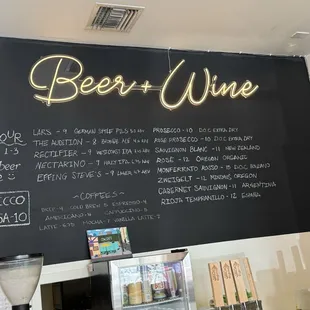 Beer + Wine
OUR
1-3
beer
LARS - 9 GERMAN STYLE PILS
THE AUDITION - 8 BROWN ALE
RECTIFIER - 9 WESTCOAST IPA
NECTARINO - 9 HAZY IPA
EFFING STEVE'S - 9 LAGER
PROSECCO - 10 D.O.C EXTRA DRY
ROSE PROSECCO - 10 D.O.C EXTRA DRY
SAUVIGNON BLANC - 11 NEW ZEALAND
ROSE - 12 OREGON ORGANIC
MONFERRATO ROSSO - 15 D.O.C
ZWEIGELT - 12 OREGON
CABERNET SAUVIGNON - 11 ARGENTINA
RIOJA TEMPRANILLO - 12
CCO
GA-10
- COFFEES -
COLD BREW 5 ESPRESSO 4
AMERICANO 4 CAPPUCCINO 5
LATTE MOCHA VANILLA LATTE